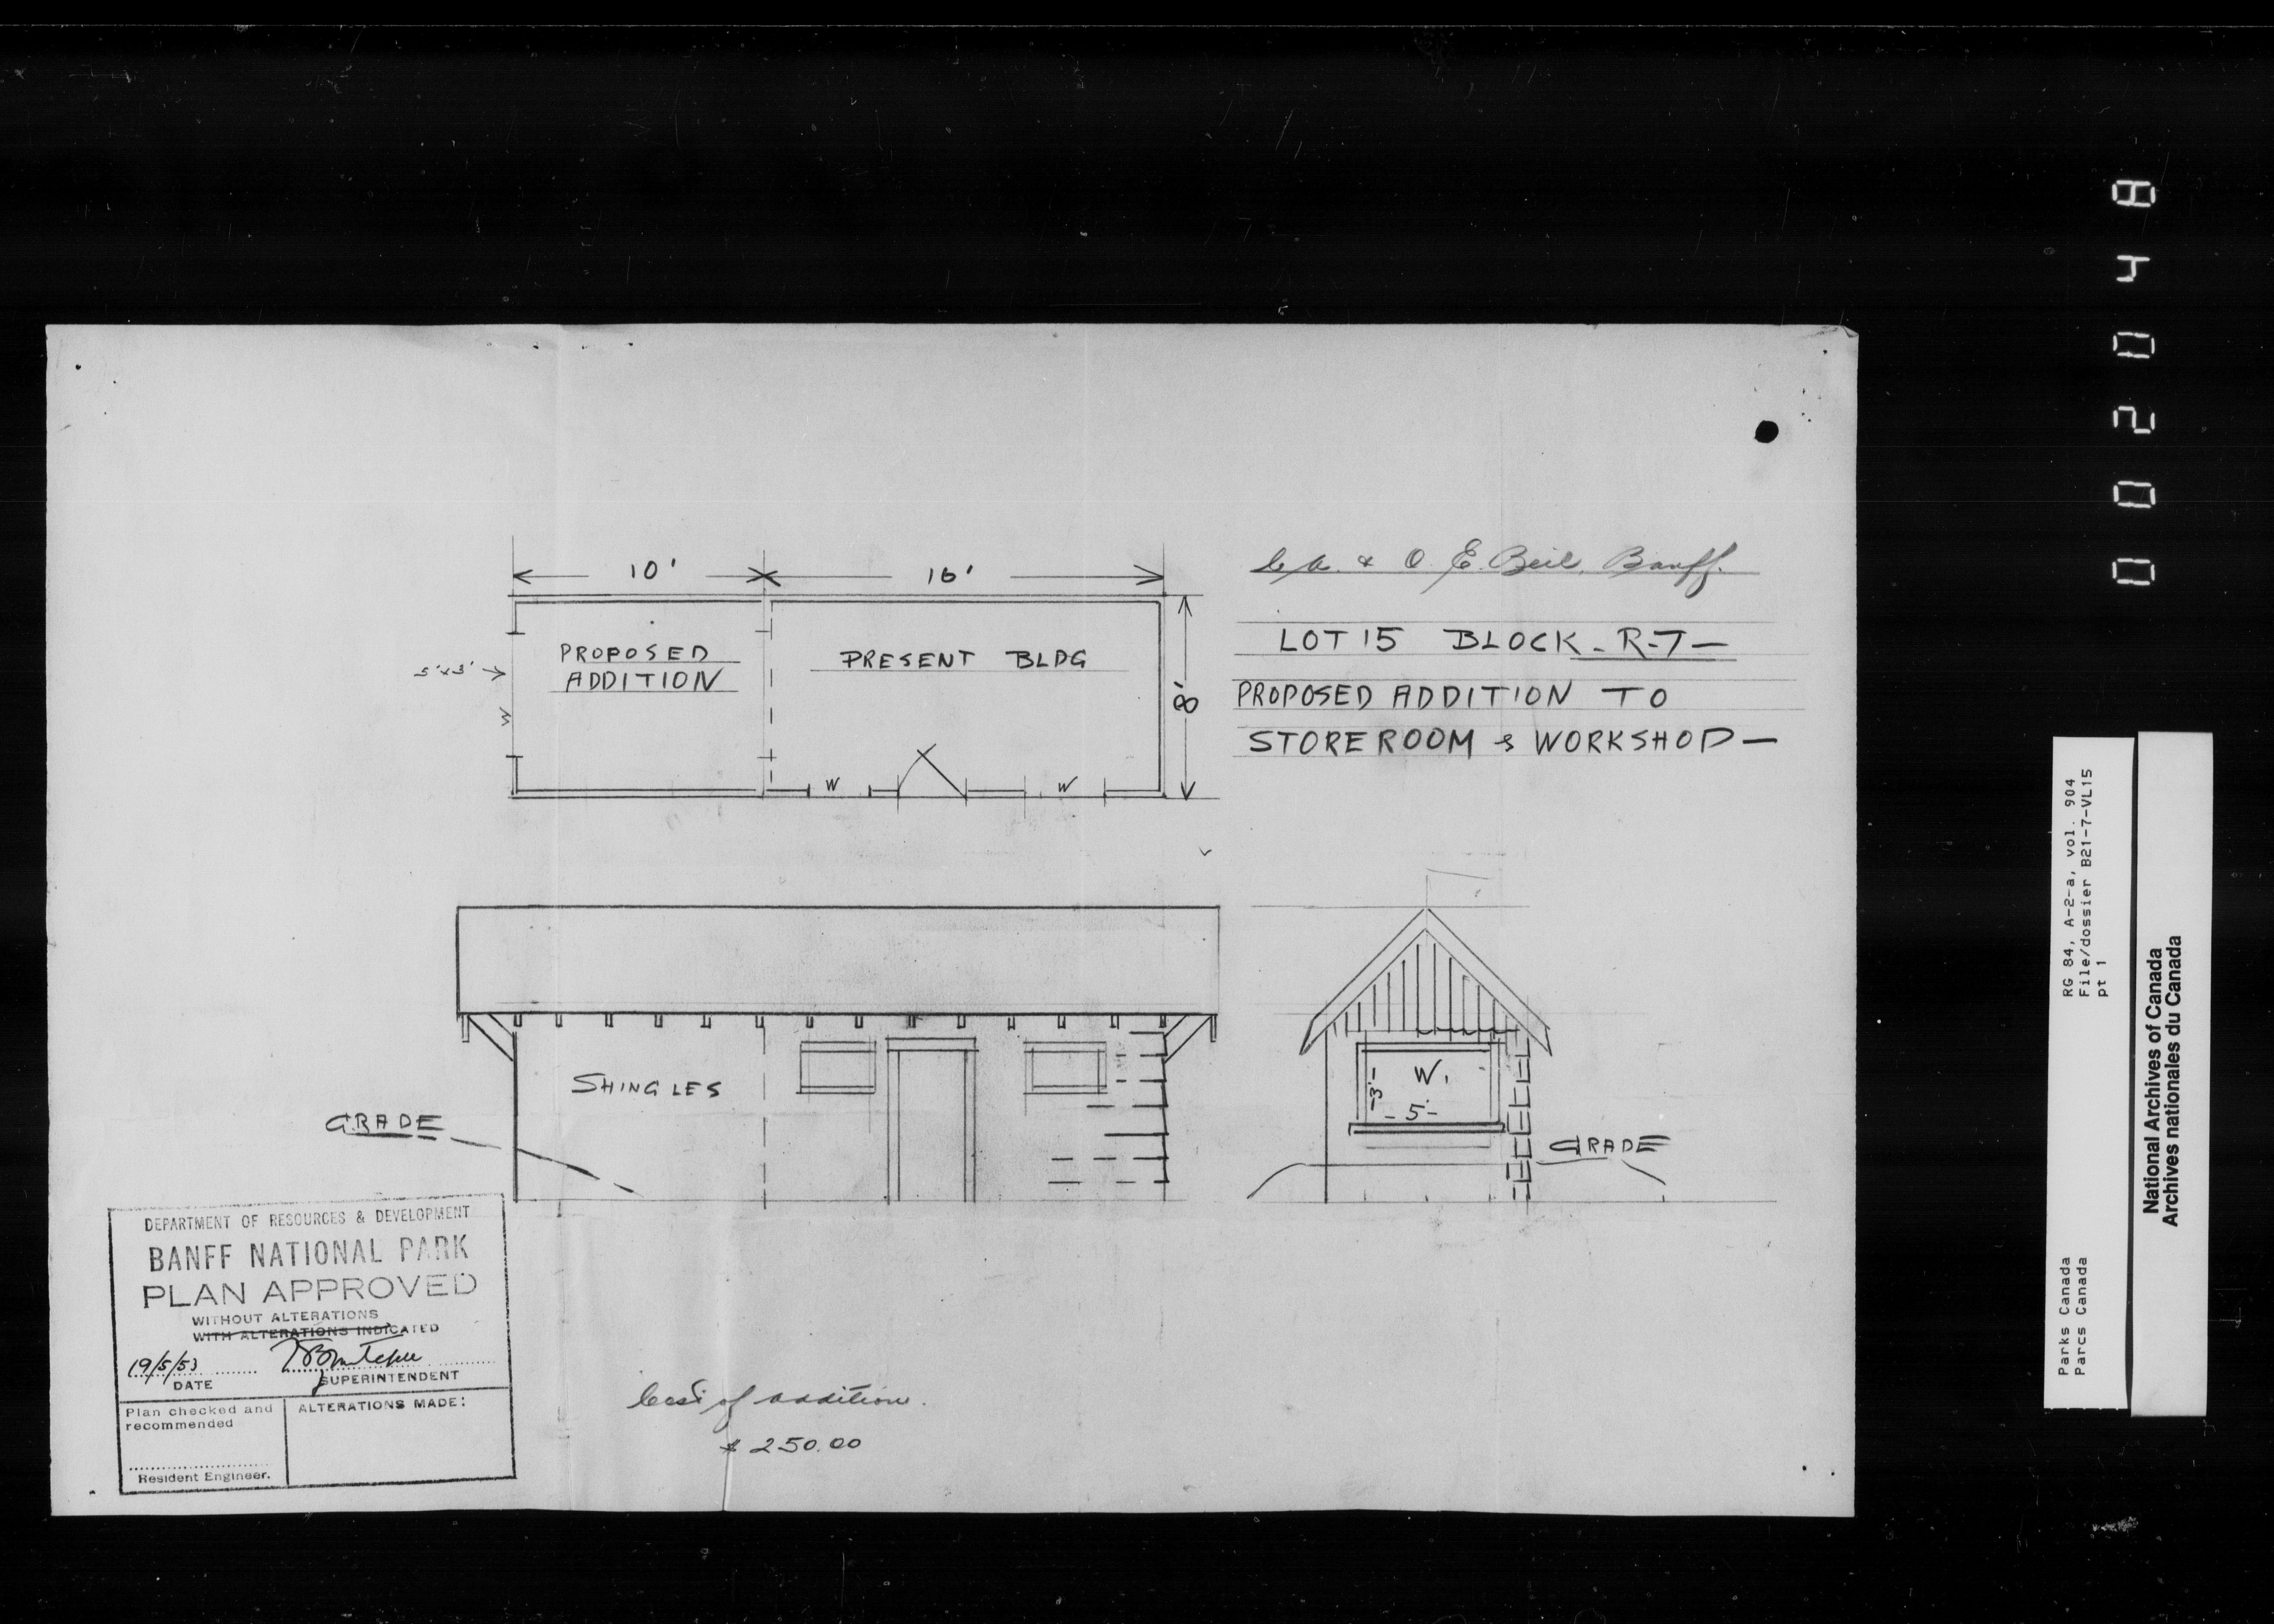 10' 16'
C. A. & O. E. Beil, Banff.
LOT 15 BLOCK - R-7 -
PROPOSED ADDITION TO
STOREROOM & WORKSHOP -
PROPOSED
ADDITION
PRESENT BLDG
5'x3'
W
8'
W W
SHINGLES
GRADE
W.
3'
- 5' -
GRADE
DEPARTMENT OF RESOURCES & DEVELOPMENT
BANFF NATIONAL PARK
PLAN APPROVED
WITHOUT ALTERATIONS
WITH ALTERATIONS INDICATED
19/5/53
DATE
SUPERINTENDENT
Plan checked and
recommended
Resident Engineer.
ALTERATIONS MADE:
Cost of addition.
$ 250.00
0002048
RG 84, A-2-a, vol. 904
File/dossier B21-7-VL15
pt 1
Parks Canada
Parcs Canada
National Archives of Canada
Archives nationales du Canada